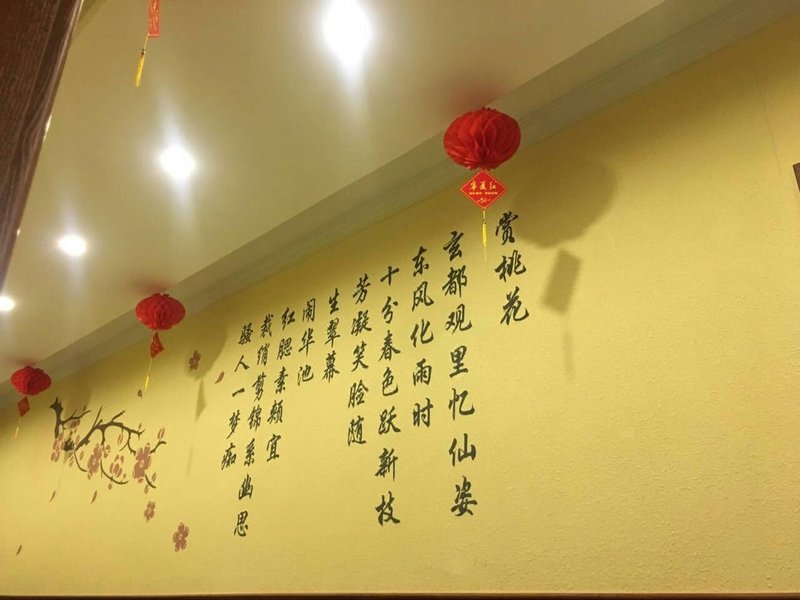 赏桃花
玄都观里忆仙姿
东风化雨时
十分春色跃新技
芳凝笑脸随
生翠幕
闹华池
红腮素颊宜
裁绡剪锦系幽思
骚人一梦痴
华夏江